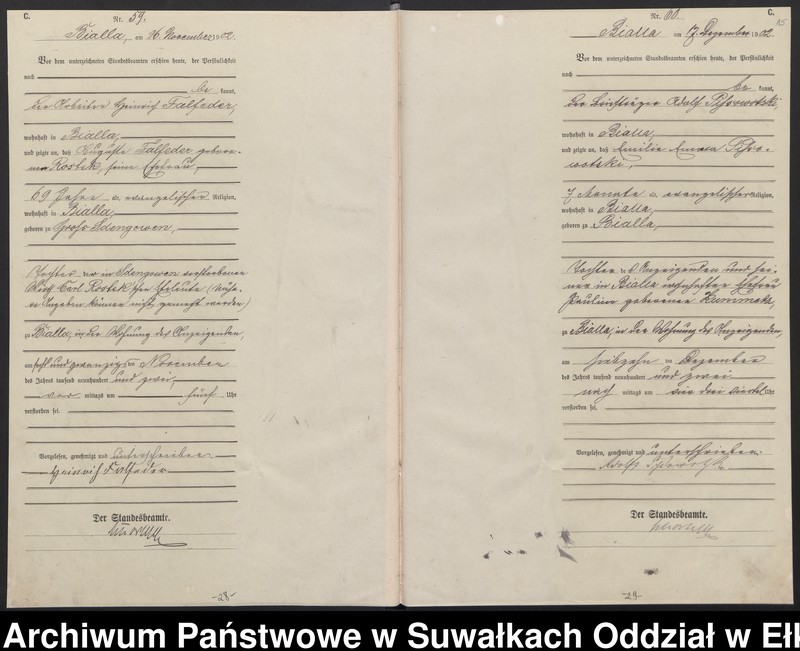 C.
Nr. 59.
Bialla, am 26. November 1902.
Vor dem unterzeichneten Standesbeamten erschien heute, der Persönlichkeit
nach
be kannt,
der Arbeiter Heinrich Falfeder,
wohnhaft in Bialla,
und zeigte an, daß Auguste Falfeder gebore-
ne Rostek, seine Ehefrau,
69 Jahre evangelischer Religion,
wohnhaft in Bialla,
geboren zu Gross Sdengowen,
Tochter der in Sdengowen verstorbenen
Wirth Carl Rostek'schen Eheleute (Nähe-
re Angaben können nicht gemacht werden)
zu Bialla, in der Wohnung des Anzeigenden,
am sechs und zwanzigsten November
des Jahres tausend neunhundert und zwei,
vor mittags um fünf Uhr
verstorben sei.
Vorgelesen, genehmigt und unterschrieben.
Heinrich Falfeder
Der Standesbeamte.
-28-
C.
Nr. 60.
Bialla am 17. Dezember 1902.
Vor dem unterzeichneten Standesbeamten erschien heute, der Persönlichkeit
nach
be kannt,
der Adolf
wohnhaft in Bialla,
und zeigte an, daß Emilie Emma
7 Monate evangelischer Religion,
wohnhaft in Bialla,
geboren zu Bialla,
Tochter des Anzeigenden und sei-
ner in Bialla wohnhaften Ehefrau
Pauline geborenen
zu Bialla, in der Wohnung des Anzeigenden,
am siebzehn ten Dezember
des Jahres tausend neunhundert und zwei
nach mittags um ein drei viertel Uhr
verstorben sei.
Vorgelesen, genehmigt und unterschrieben.
Adolf
Der Standesbeamte.
-29-
Archiwum Państwowe w Suwałkach Oddział w Ełk